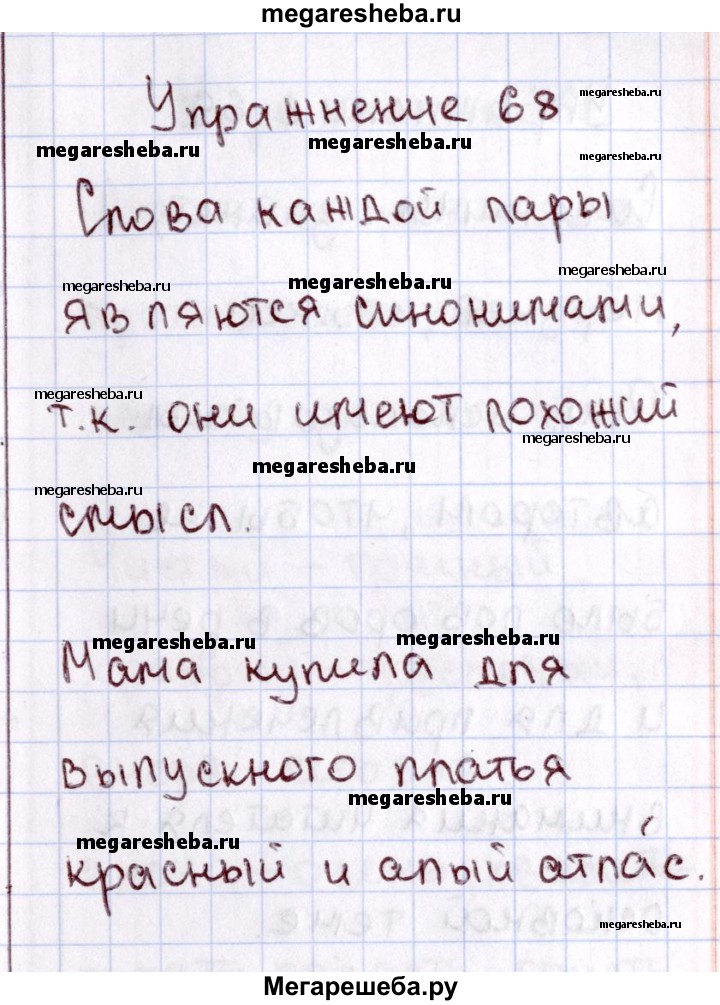 megaresheba.ru
Упражнение 68
megaresheba.ru
megaresheba.ru
megaresheba.ru
megaresheba.ru
Слова каждой пары
megaresheba.ru
megaresheba.ru
megaresheba.ru
являются синонимами,
megaresheba.ru
т.к. они имеют похожий
megaresheba.ru
megaresheba.ru
megaresheba.ru
смысл.
megaresheba.ru
megaresheba.ru
Мама купила для
выпускного платья
megaresheba.ru
megaresheba.ru
красный и алый атла́с.
megaresheba.ru
Мегарешеба.ру